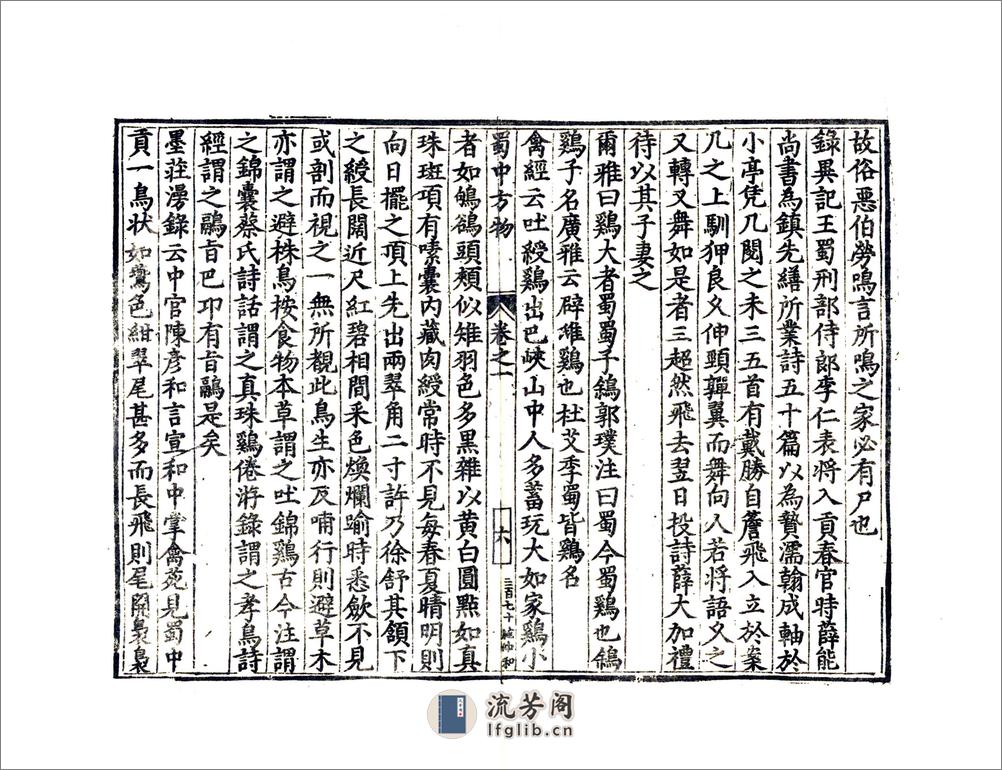 故俗惡伯勞鳴言所鳴之家必有尸也
錄異記王蜀刑部侍郎李仁表將入貢春官時薛能
尚書為鎮先繕所業詩五十篇以為贄濡翰成軸於
小亭凭几閱之未三五首有戴勝自簷飛入立於案
几之上馴狎良久伸頸嚲翼而舞向人若將語久之
又轉又舞如是者三超然飛去翌日投詩薛大加禮
待以其子妻之
爾雅曰鷄大者蜀蜀子鵨郭璞注曰蜀今蜀鷄也鵨
鷄子名廣雅云辟雝鷄也杜艾季蜀皆鷄名
禽經云吐綬鷄出巴峽山中人多畜玩大如家鷄小
蜀中方物
卷之一
六
者如鴝鵒頭頰似雉羽色多黑雜以黄白圓點如真
珠斑項有嗉囊内藏肉綬常時不見每春夏晴明則
向日擺之頂上先出兩翠角二寸許乃徐舒其頷下
之綬長闊近尺紅碧相間采色煥爛踰時悉歛不見
或剖而視之一無所覩此鳥生亦反哺行則避草木
亦謂之避株鳥按食物本草謂之吐錦鷄古今注謂
之錦囊蔡氏詩話謂之真珠鷄倦游錄謂之孝鳥詩
經謂之鷊旨巴卭有旨鷊是矣
墨莊漫錄云中官陳彦和言宣和中掌禽苑見蜀中
貢一鳥狀如鷰色紺翠尾甚多而長飛則尾開裊裊
流芳阁
lfglib.cn